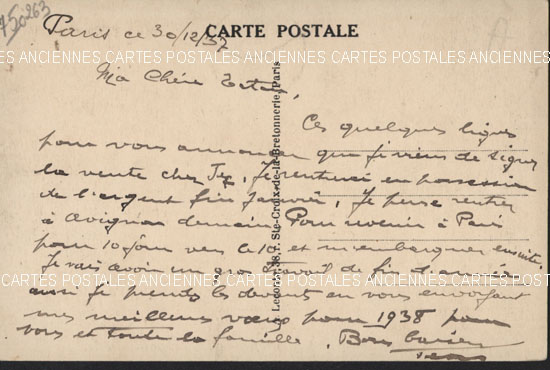 750263
Paris ce 30/12/37
CARTE POSTALE
ANCIENNES CARTES POSTALES ANCIENNES CARTES POSTALES ANCIENNES CARTES POSTALES ANCIENNES
Ma Chère
Ces quelques lignes
pour vous annoncer que je viens de signer
la vente chez Je rentrerai en possession
de l'argent fin Janvier, Je pense rentrer
à Avignon demain Pour revenir à Paris
pour 10 jours vers le 10 et m'embarquer ensuite
Je vais avoir un de fin d'année
aussi je prends les devants en vous envoyant
mes meilleurs vœux pour 1938 pour
vous et toute la famille. Bons baisers
Leconte, 38, r. Ste-Croix-de-la-Bretonnerie, Paris
CARTES POSTALES ANCIENNES CARTES POSTALES ANCIENNES CARTES POSTALES ANCIENNES CARTES